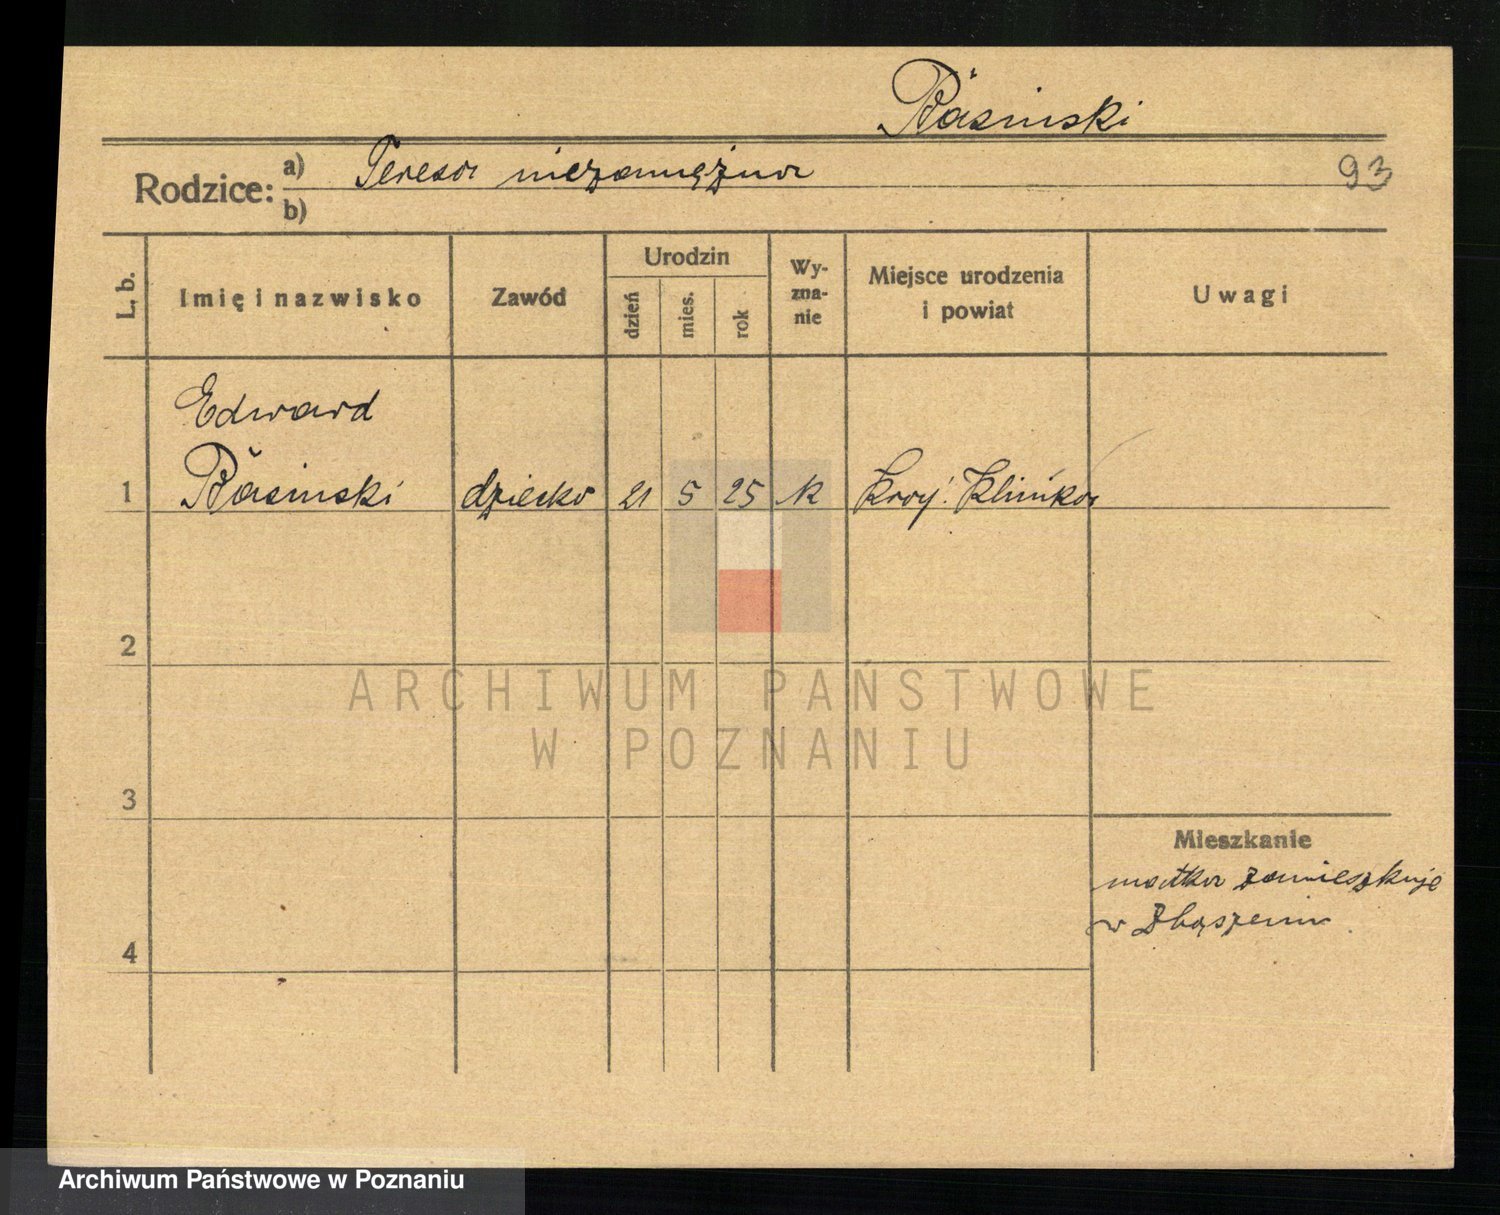 Rasinski
Rodzice: a) Teresa niezamężna
b)
93
L. b. Imię i nazwisko Zawód Urodzin dzień mies. rok Wy-zna-nie Miejsce urodzenia i powiat Uwagi
Edward
1 Rasinski dziecko 21 5 25 k Kraj. Klinika
2
3
4
Mieszkanie
matka zamieszkuje
w Zbąszeniu
ARCHIWUM PAŃSTWOWE
W POZNANIU
Archiwum Państwowe w Poznaniu